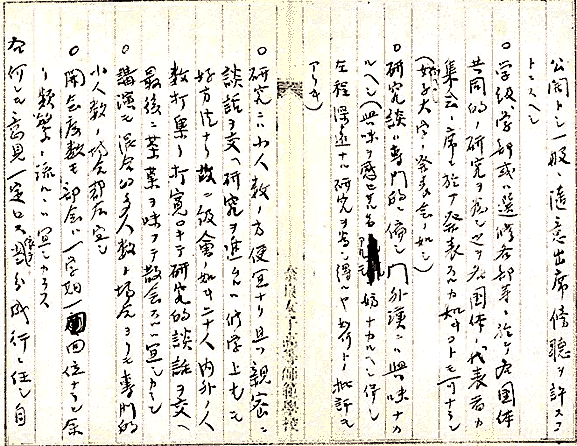 公開トシ一般ノ随意出席傍聴ヲ許スコ
トヽスヘシ
○学級、学部或ハ選修各部等ニ於テ右団体
共同的ノ研究ヲ為シ之ヲ右団体ノ代表者カ
集会ノ席ニ於テ発表スルカ如キコトモ可ナラン
(如文大学ノ発表会ノ如シ)
○研究談ハ専門的ニ偏シ門外漢ニハ興味ナカ
ルヘシ(興味ヲ感セサル 好ナカルヘシ併シ
左程深遠ナル研究ヲ為シ得ヘキヤ如何トノ批評モ
アリキ)
奈良女子高等師範學校
○研究ニハ小人数ノ方便宜ナリ且ツ親密ニ
談話ヲ交ヘ研究ヲ進ムルハ修学上尤モ
好方法ナリ故ニ級會ノ如キ二十人内外ノ人
数打集リ打寛ロキテ研究的談話ヲ交ヘ
最後ニ茶菓ヲ味フテ散会スルハ宜シカラン
○講演モ混合的多人数ノ場合ヨリモ専門的
小人数ノ場合却テ宜シ
○開会度数モ部会ハ一学期 四位ナラン余
リ頻繁ニ流ルヽハ宜シカラス
右何レモ意見一定セス 部分成行ニ任シ自